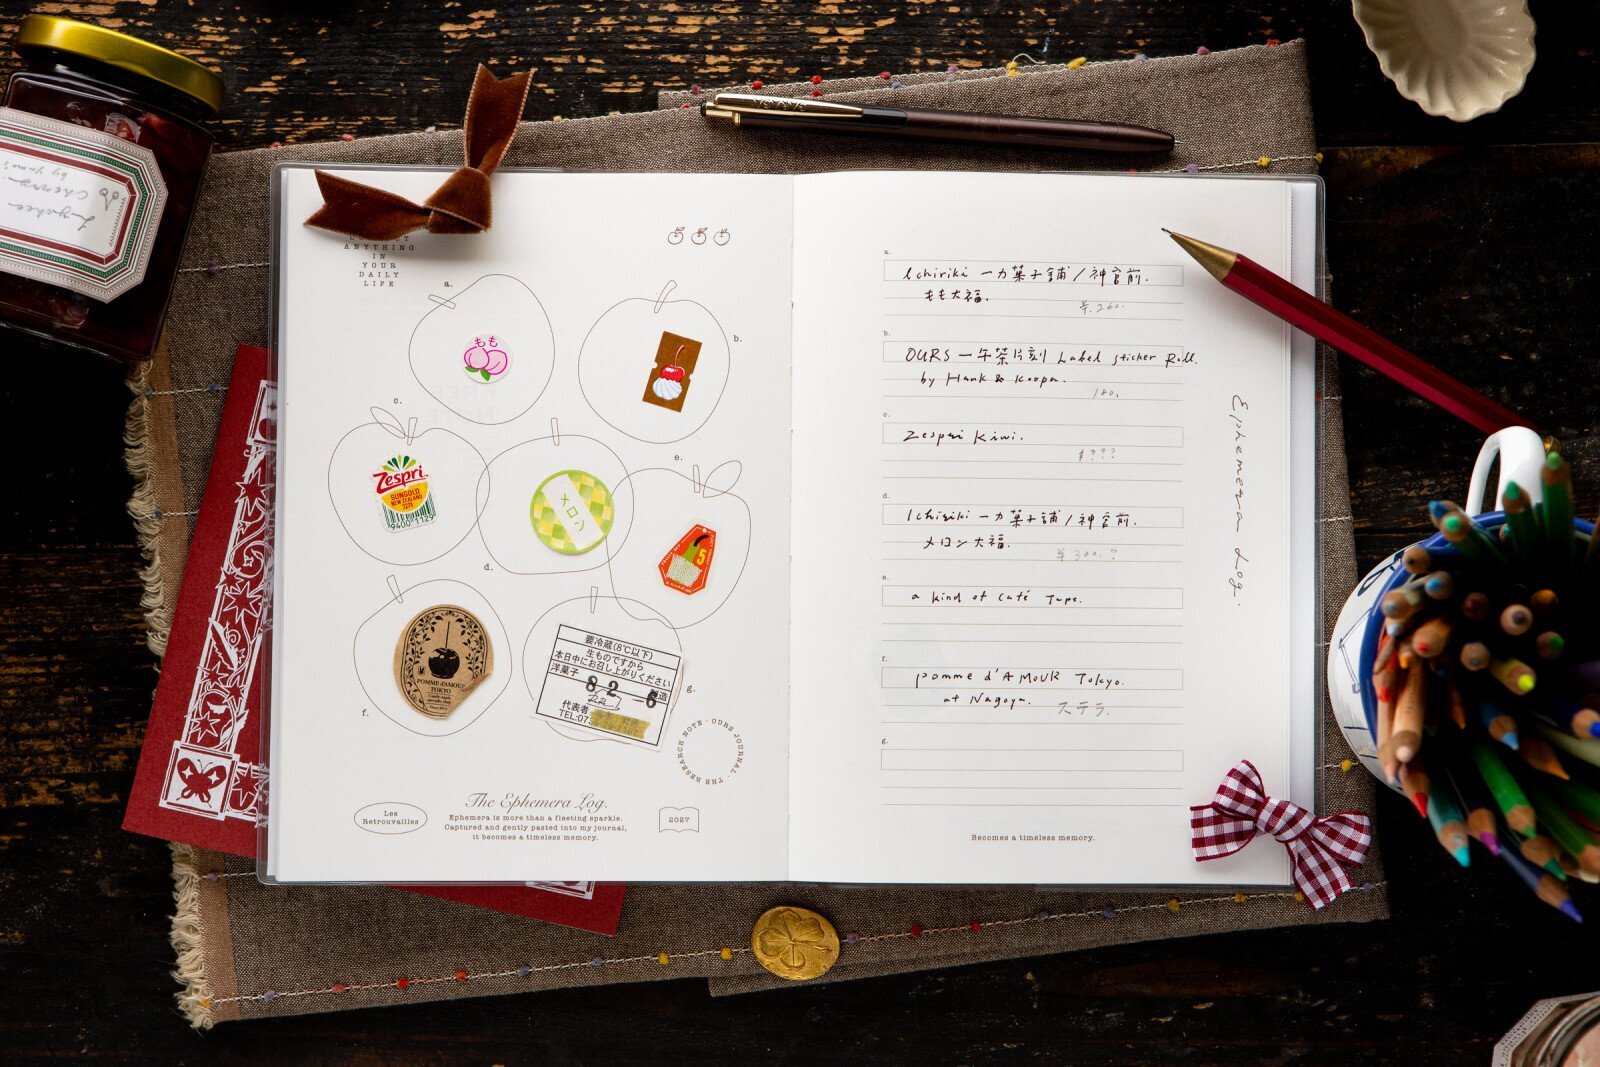 ANYTHING
IN
YOUR
DAILY
LIFE
a.
もも
b.
c.
Zespri
SUNGOLD
NEW ZEALAND
3279
9400 1129
d.
メロン
e.
5
f.
POMME d'AMOUR
TOKYO
g.
要冷蔵(8℃以下)
生ものですから
本日中にお召し上がりください
洋菓子
8 2 -6 製造
代表者
TEL:07
THE RESEARCH NOTE · OURS JOURNAL ·
Les
Retrouvailles
The Ephemera Log.
Ephemera is more than a fleeting sparkle.
Captured and gently pasted into my journal,
it becomes a timeless memory.
2027
a.
Ichiriki 一力菓子舗/神宮前.
もも大福.
¥.260.
b.
OURS 一午茶片刻 Label sticker Roll.
by Hank & Koopa.
180.
c.
Zespri Kiwi.
$???
d.
Ichiriki 一力菓子舗/神宮前.
メロン大福.
¥300.?
e.
a kind of Café Tape.
f.
pomme d'AMOUR Tokyo.
at Nagoya.
ステラ.
g.
Ephemera Log.
Becomes a timeless memory.
Lychee
Cherry.